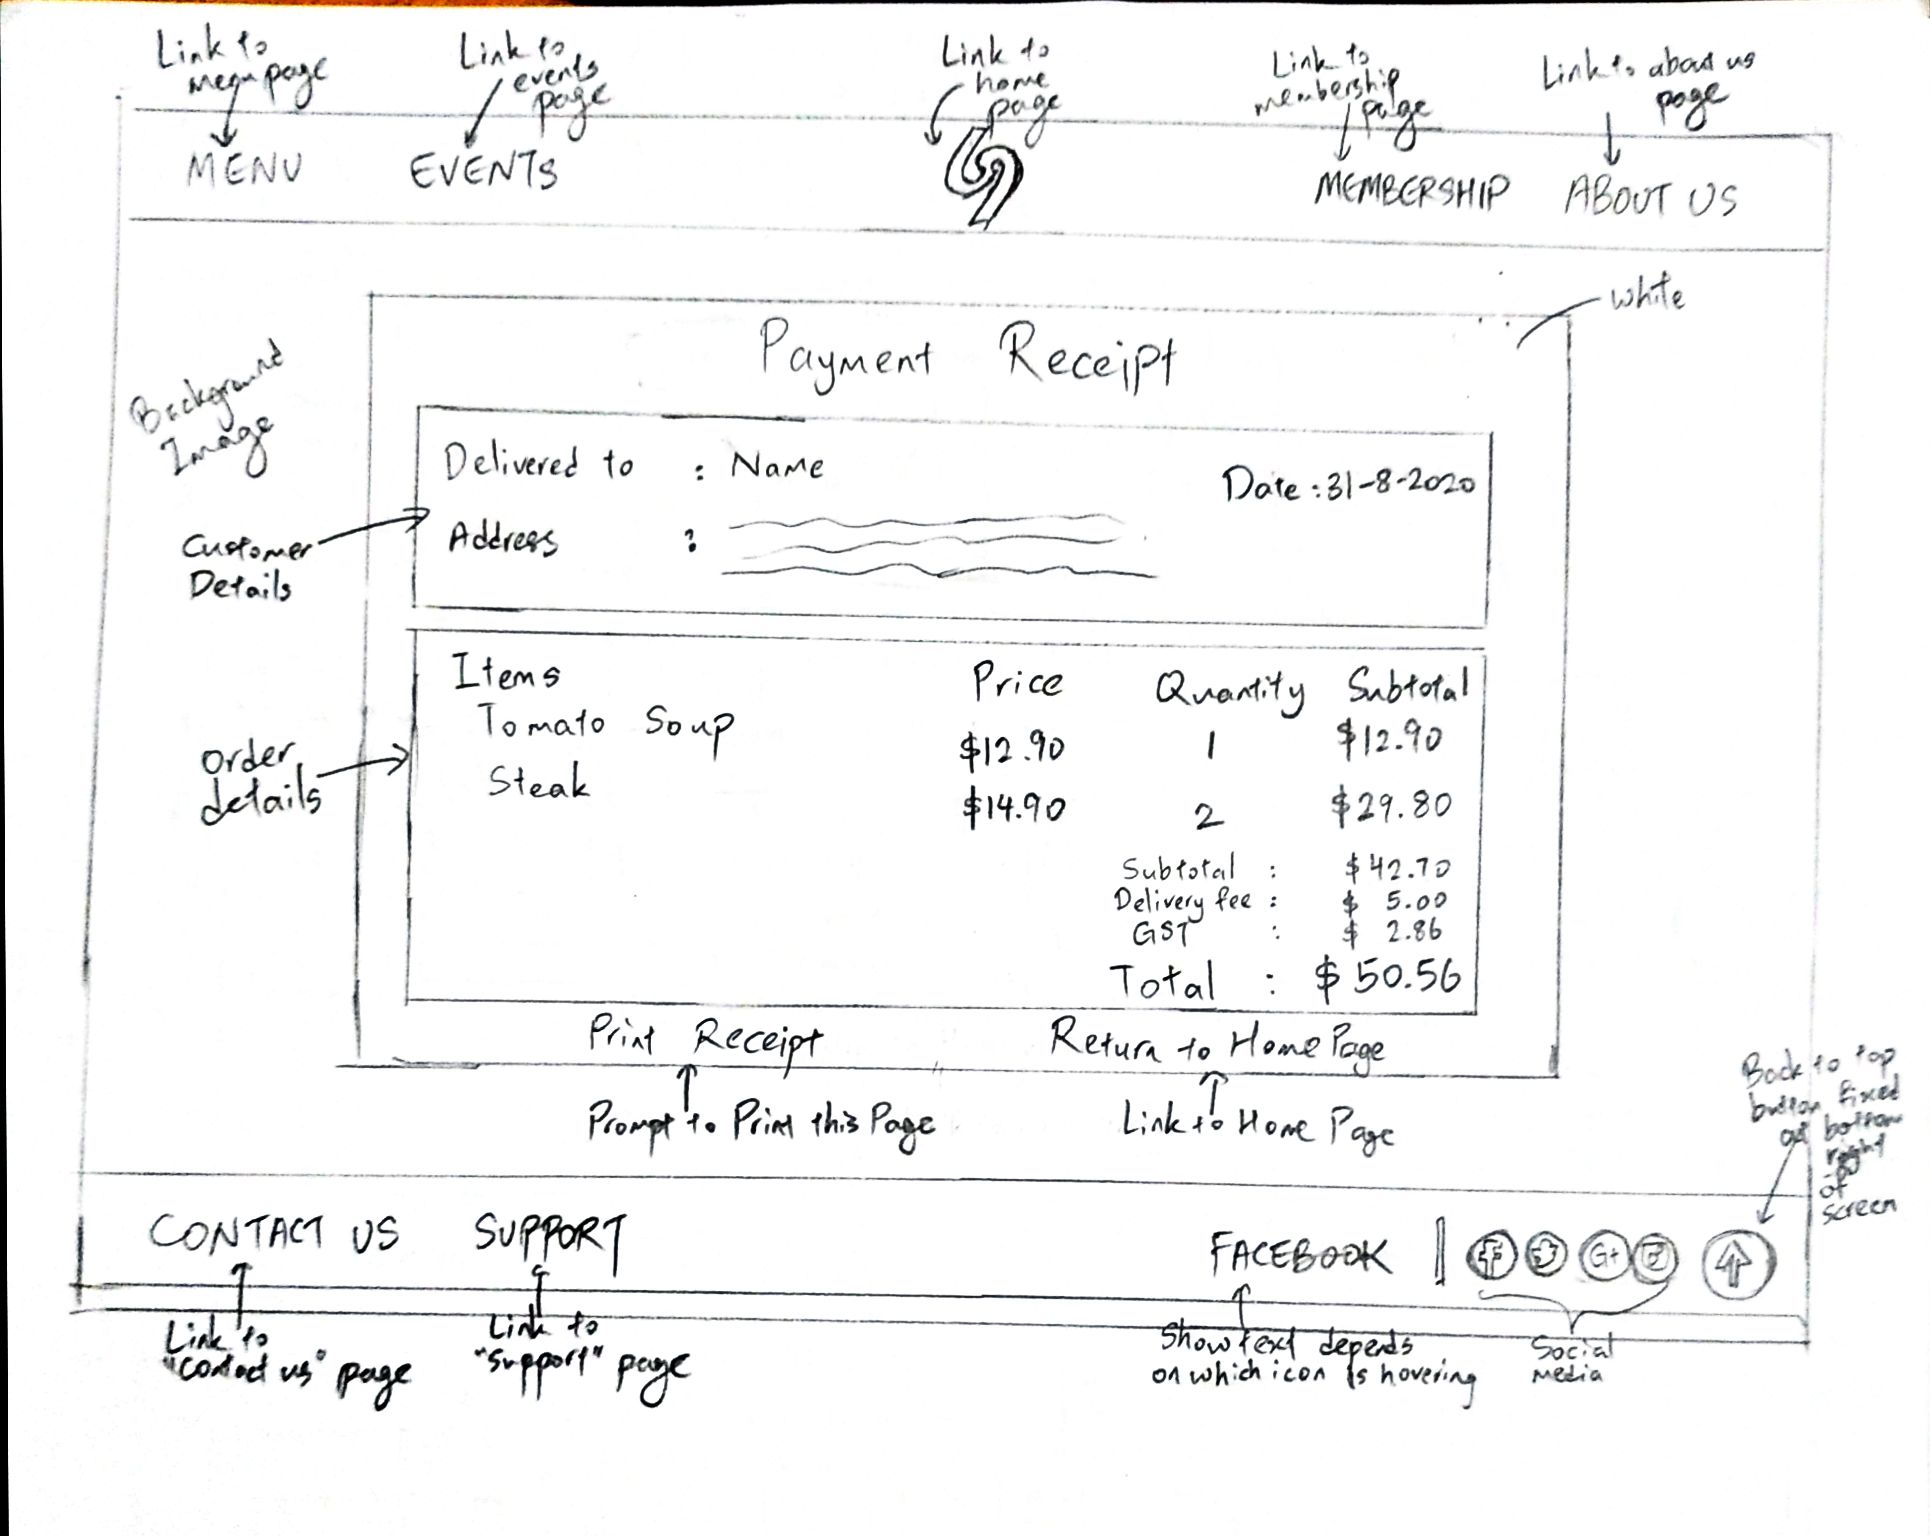 Link to
menu page
Link to
events
page
Link to
home
page
Link to
membership
page
Link to about us
page
MENU
EVENTS
MEMBERSHIP
ABOUT US
White
Background
Image
Payment Receipt
Delivered to : Name
Date : 31-8-2020
Address :
Customer
Details
Items Price Quantity Subtotal
Tomato Soup $12.90 1 $12.90
Steak $14.90 2 $29.80
Order
details
Subtotal : $42.70
Delivery fee : $ 5.00
GST : $ 2.86
Total : $50.56
Print Receipt
Return to Home Page
Prompt to Print this Page
Link to Home Page
Back to top
button fixed
at bottom
right
of
screen
CONTACT US
SUPPORT
FACEBOOK |
G+
Link to
"Contact us" page
Link to
"support" page
Show text depends
on which icon is hovering
Social
media